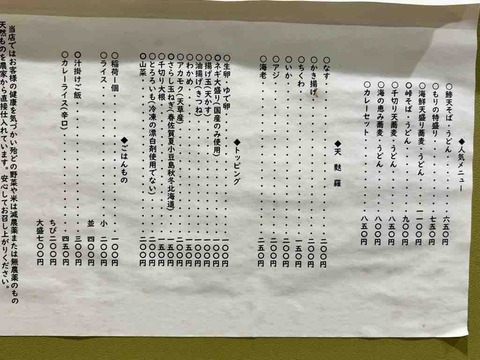 ◆人気メニュー
〇鯵天そば・うどん・・・・・六五〇円
〇もりの特盛り・・・・・・・七五〇円
〇海鮮天盛り蕎麦・うどん・・一一〇〇円
〇峠そば・うどん・・・・・・九〇〇円
〇千切り天蕎麦・うどん・・・八〇〇円
〇海の恵み蕎麦・うどん・・・八〇〇円
〇カレーセット・・・・・・・八五〇円
◆天麩羅
〇なす・・・・・・・・・・・一五〇円
〇かき揚げ・・・・・・・・・
〇ちくわ・・・・・・・・・・
〇いか・・・・・・・・・・・二〇〇円
〇アジ・・・・・・・・・・・
〇海老・・・・・・・・・・・二五〇円
◆トッピング
〇生卵・ゆで卵・・・・・・・
〇ネギ大盛り(国産のみ使用)・・一〇〇円
〇揚げ玉(天かす)・・・・・・
〇油揚げ(きつね)・・・・・・
〇わかめ・・・・・・・・・・一五〇円
〇アカモク(天草産)・・・・・
〇さらし玉ねぎ(春佐賀夏小豆島秋冬北海道)
〇千切り大根・・・・・・・・一五〇円
〇とろろいも(冷凍の漂白剤使用でない)・
〇山菜・・・・・・・・・・・二〇〇円
◆ごはんもの
〇稲荷一個・・・・・・・・・一〇〇円
〇ライス・・・・・・・・・・小 二〇〇円
並 四〇〇円
〇汁掛けご飯・・・・・・・・三〇〇円
〇カレーライス(辛口)・・・・四五〇円
ちび二〇〇円
大盛七〇〇円
当店ではお客様の健康を気づかい殆どの野菜や米は減農薬または無農薬のもの
天然ものを農家から直接仕入れています。安心してお召し上がりください。